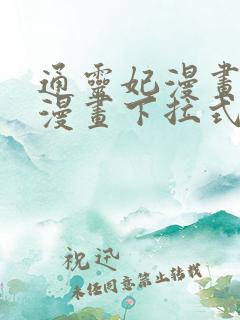 通靈妃漫畫
漫畫下拉式
祝迅
未经同意禁止转载